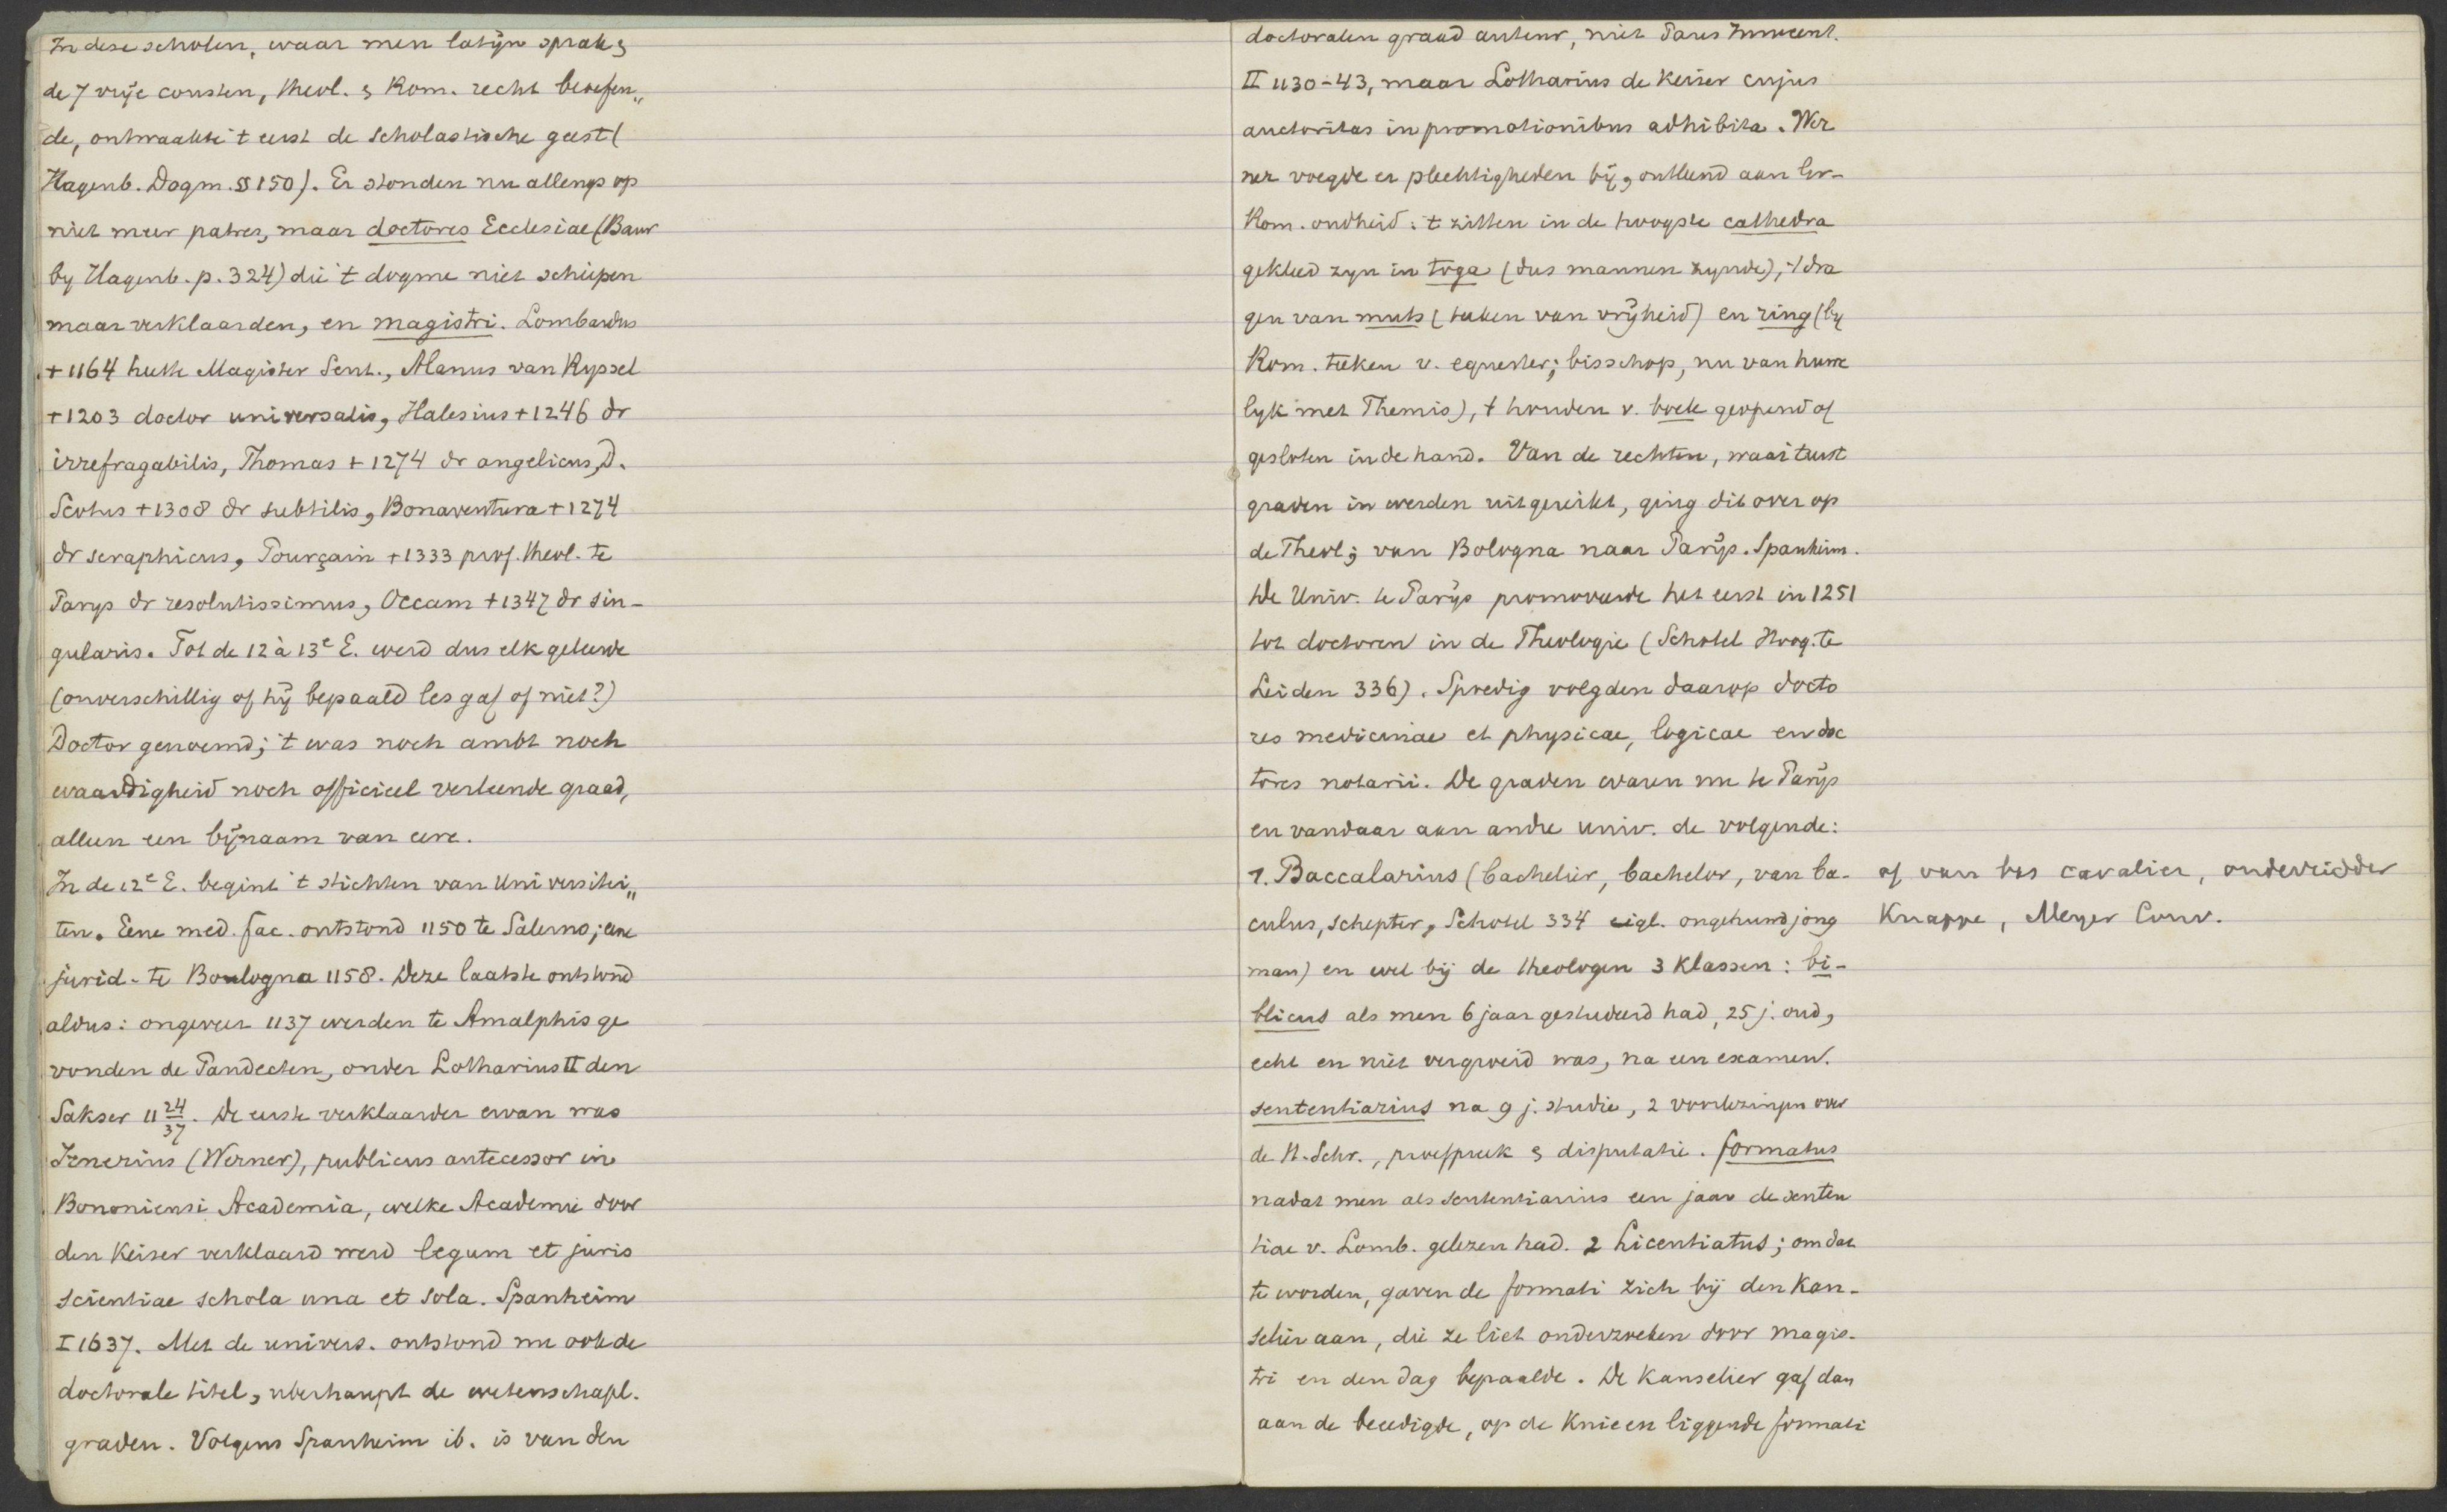 In deze scholen, waar men latijn sprak &
de 7 vrije consten, theol. & Rom. recht beoefen„
de, ontwaakte 't eerst de scholastische geest (
Hagenb. Dogm. § 150). Er stonden nu allengs op
niet meer patres, maar doctores Ecclesiae (Baur
by Hagenb. p. 324) die 't dogme niet schiepen
maar verklaarden, en magistri. Lombardus
+ 1164 heette Magister Sent., Alanus van Ryssel
+ 1203 doctor universalis, Halesius + 1246 dr
irrefragabilis, Thomas + 1274 dr angelicus, D.
Scotus + 1308 dr subtilis, Bonaventura + 1274
dr seraphicus, Pourçain + 1333 prof. theol. te
Parys dr resolutissimus, Occam + 1347 dr sin-
gularis. Tot de 12 à 13e E. werd dus elk geleerde
(onverschillig of hij bepaald les gaf of niet?)
Doctor genoemd; 't was noch ambt noch
waardigheid noch officieel verleende graad,
alleen een bijnaam van eere.
In de 12e E. begint 't stichten van Universitei„
ten. Eene med. fac. ontstond 1150 te Salerno; eene
jurid. te Boulogna 1158. Deze laatste ontstond
aldus: ongeveer 1137 werden te Amalphis ge
vonden de Pandecten, onder Lotharius II den
Sakser 11 24/37. De eerste verklaarder ervan was
Irnerius (Werner), publicus antecessor in
Bononiensi Academia, welke Academie door
den Keiser verklaard werd legum et juris
scientiae schola una et sola. Spanheim
I 1637. Met de univers. ontstond nu ook de
doctorale titel, uberhaupt de wetenschapl.
graden. Volgens Spanheim ib. is van den
doctoralen graad auteur, niet Paus Innocent.
II 1130-43, maar Lotharius de Keiser cujus
auctoritas in promotionibus adhibita. Wer
ner voegde er plechtigheden bij, ontleend aan Gr-
Rom. oudheid: 't zitten in de hoogste cathedra
gekleed zyn in toga (dus mannen zynde), 't dra
gen van muts (teeken van vrijheid) en ring (by
Rom. teeken v. equester; bisschop, nu van huwe
lyk met Themis), 't houden v. boek geopend of
gesloten in de hand. Van de rechten, waar 't eerst
graden in werden uitgereikt, ging dit over op
de Theol; van Bologna naar Parijs. Spanheim.
De Univ. te Parijs promoveerde het eerst in 1251
tot doctoren in de Theologie (Schotel Hoog. te
Leiden 336). Spoedig volgden daarop docto
res medicinae et physicae, logicae en doc
tores notarii. De graden waren nu te Parijs
en vandaar aan andre univ. de volgende:
1. Baccalarius (bachelier, bachelor, van ba-
culus, schepter, Schotel 334 eigl. ongehuwd jong
man) en wel bij de theologen 3 klassen: bi-
blicus als men 6 jaar gestudeerd had, 25 j. oud,
echt en niet vergroeid was, na een examen.
sententiarius na 9 j. studie, 2 voorlezingen over
de H. Schr., proefpreek & disputatie. formatus
nadat men als sententiarius een jaar de senten
tiae v. Lomb. gelezen had. 2 Licentiatus; om dat
te worden, gaven de formati zich bij den Kan-
selier aan, die ze liet onderzoeken door magis-
tri en den dag bepaalde. De Kanselier gaf dan
aan de beëedigde, op de knieen liggende formati
of van bas cavalier, onderridder
Knappe, Meyer Conv.